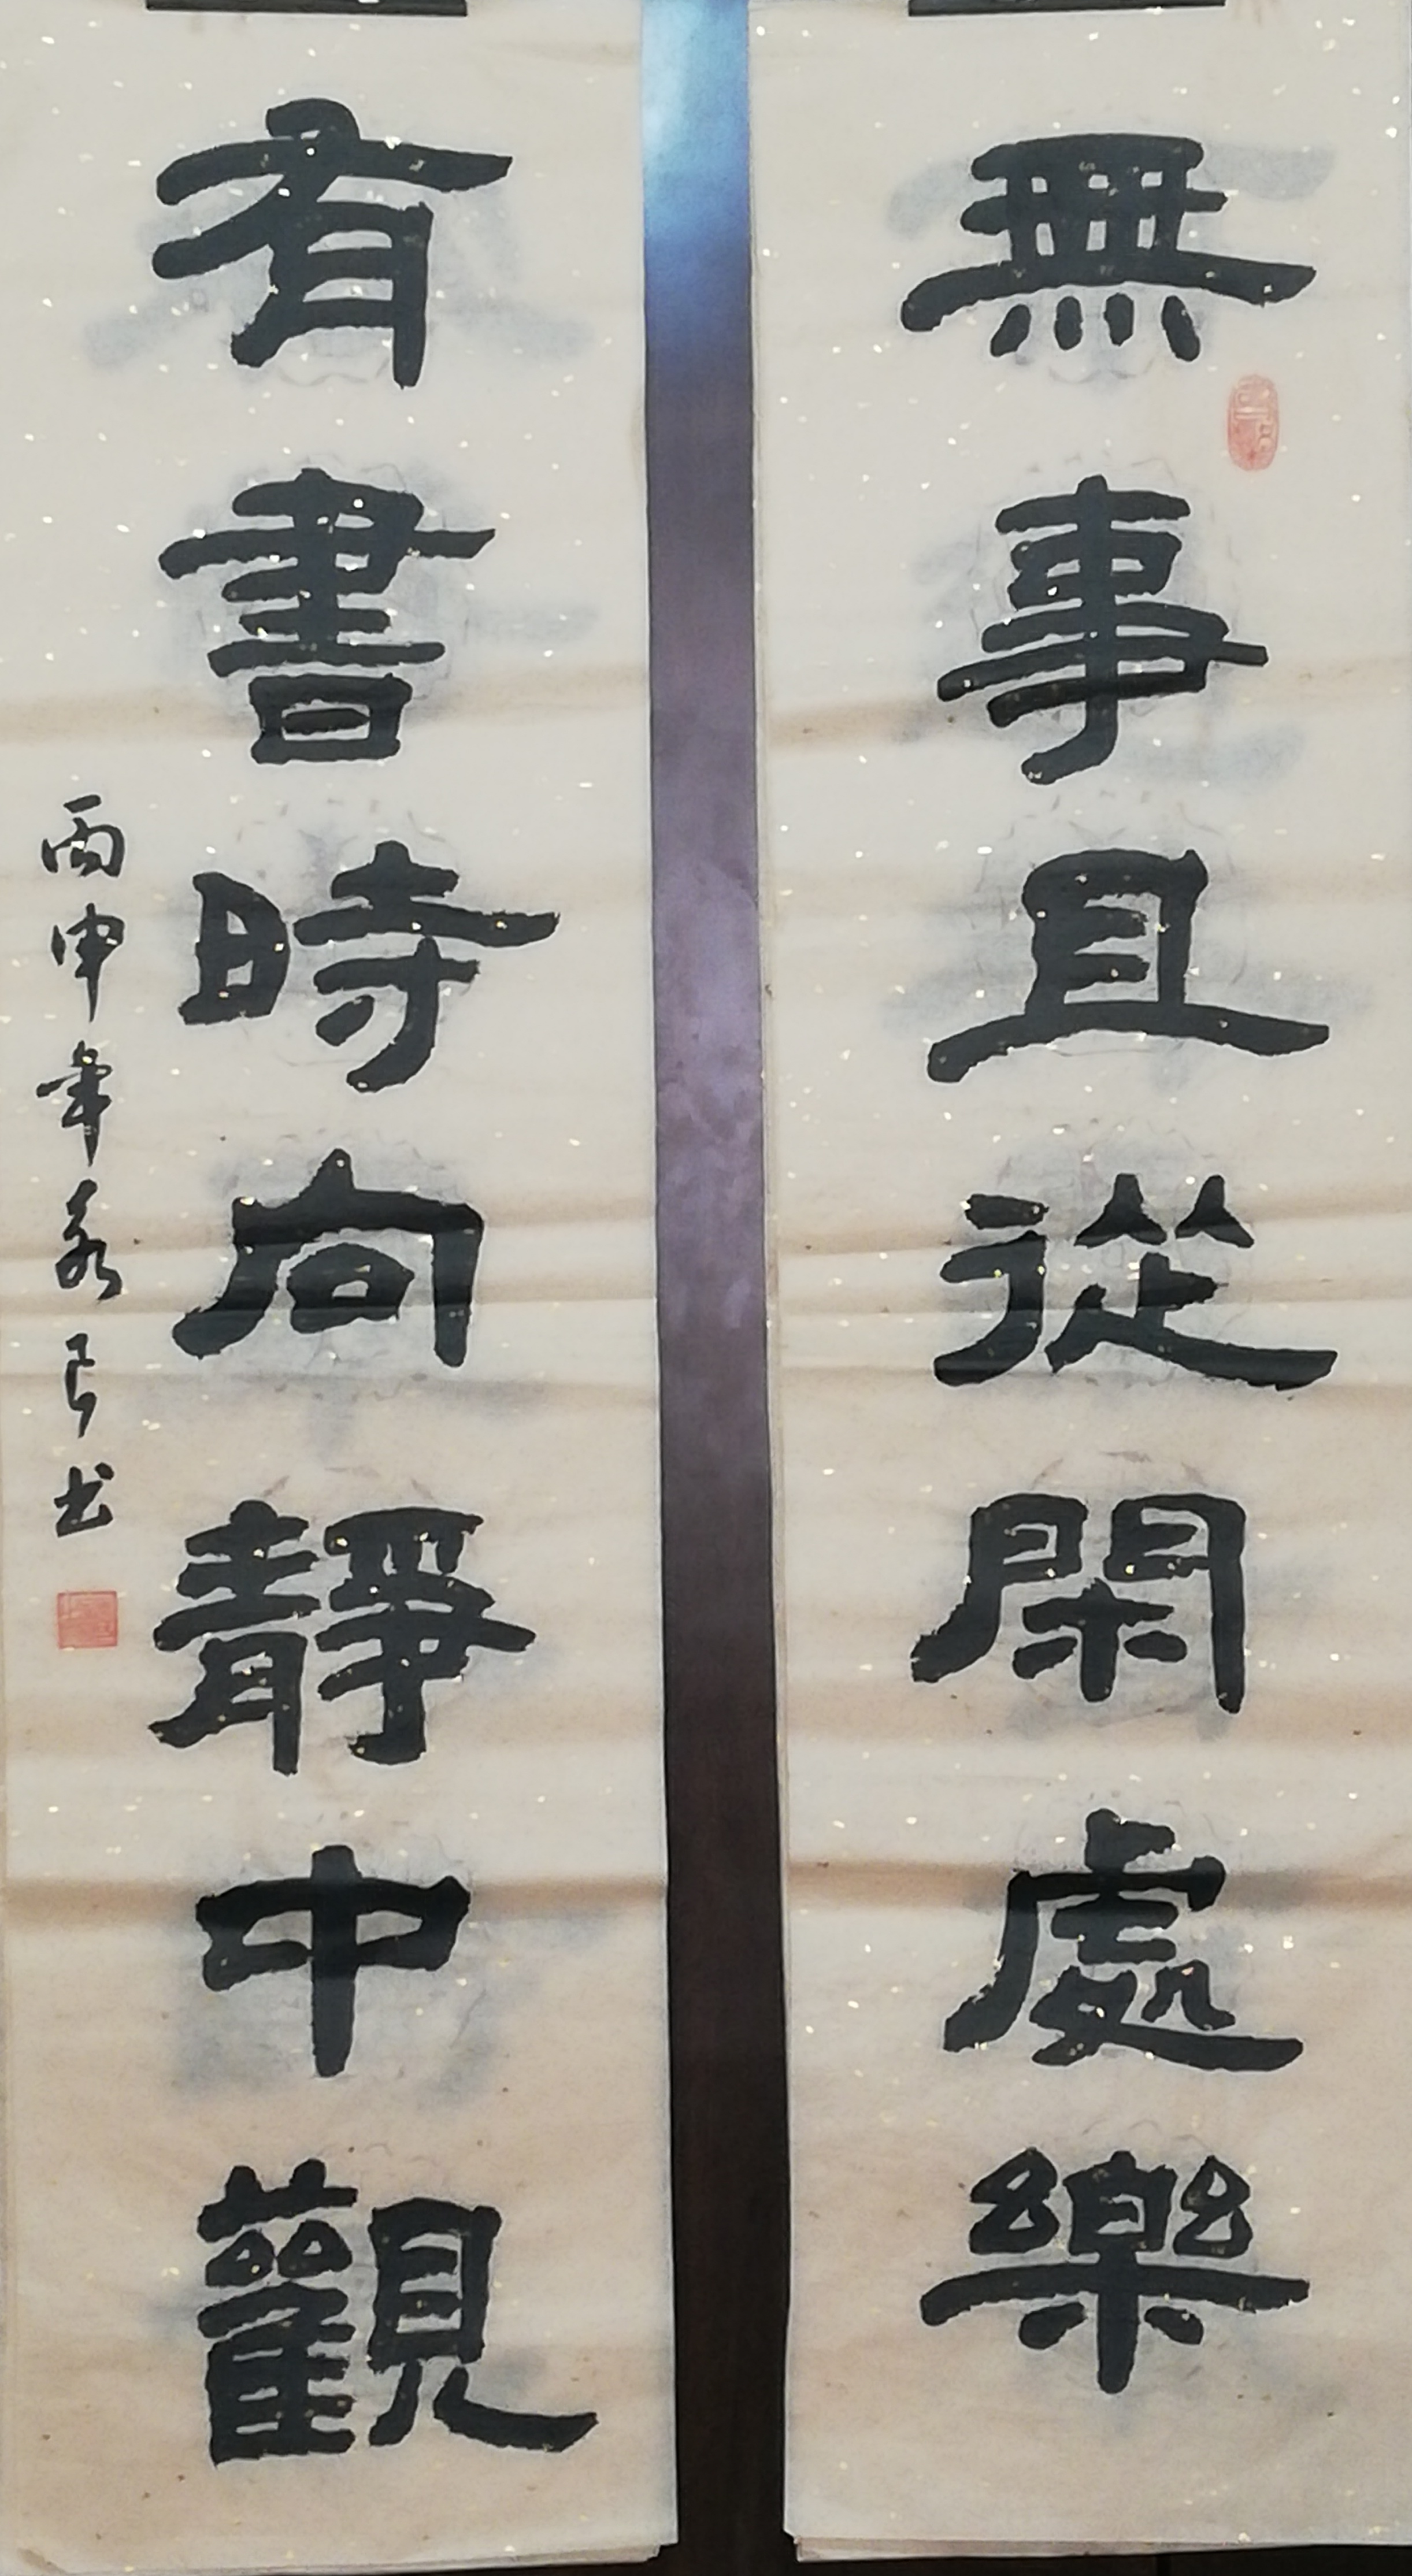 無事且從閑處樂
有書時向靜中觀
丙申年永弓书